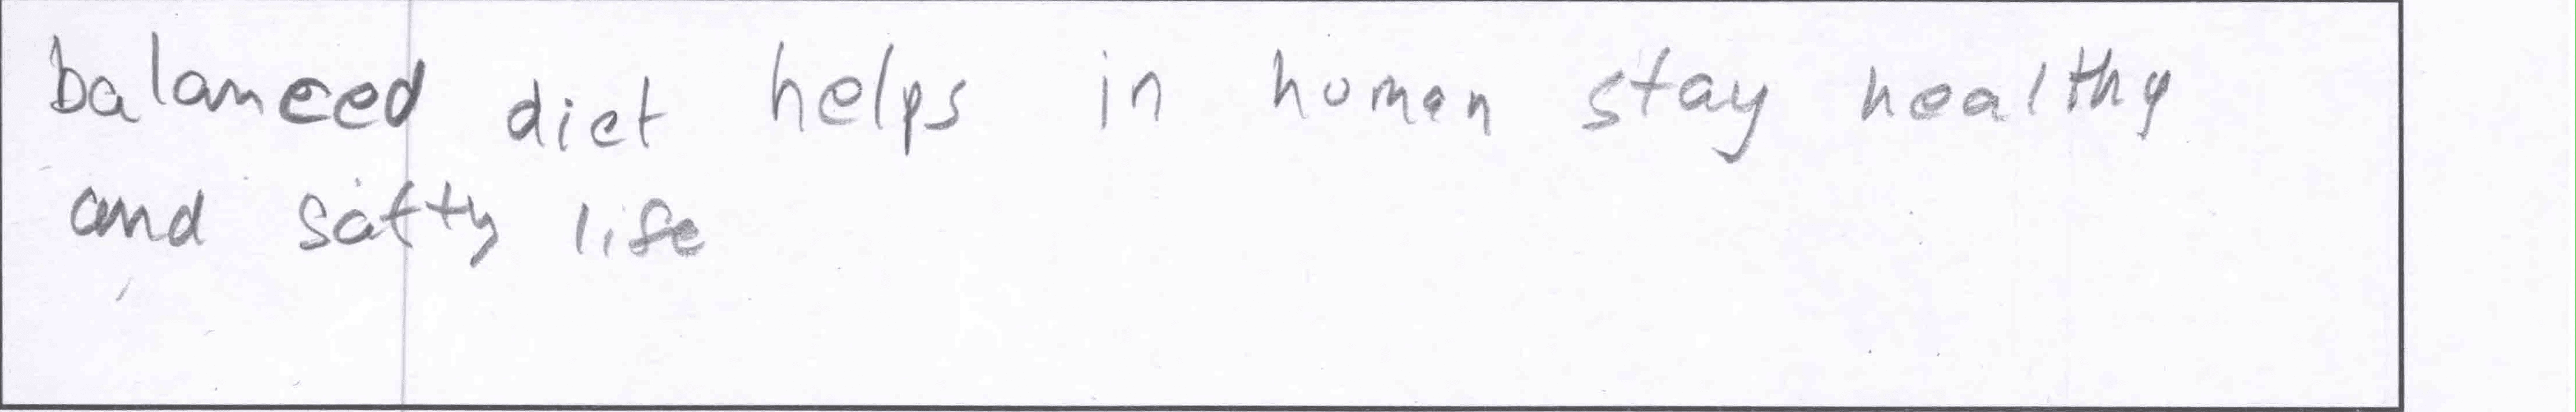 balanced diet helps in human stay healthy
and safty life